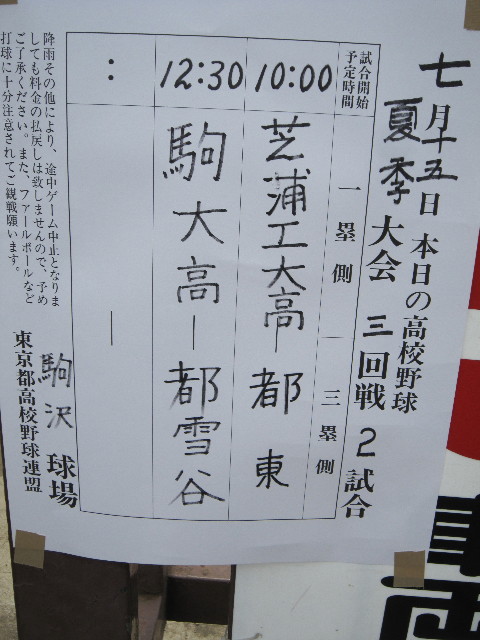 七月十五日 本日の高校野球
夏季大会 三回戦 2試合
試合開始予定時間 一塁側 ｜ 三塁側
10:00 芝浦工大高―都東
12:30 駒大高―都雪谷
： ―
降雨その他により、途中ゲーム中止となりま
しても料金の払戻しは致しませんので、予め
ご了承ください。また、ファールボールなど
打球に十分注意されてご観戦願います。
駒沢球場
東京都高校野球連盟